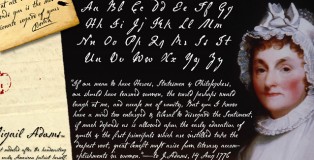 Aa Bb Cc Dd Ee Ff Gg
Hh Ii Jj Kk Ll Mm
Nn Oo Pp Qq Rr Ss Tt
Uu Vv Ww Xx Yy Zz
"If we mean to have Heroes, Statesmen & Philosophers,
we should have learned women. The world perhaps would
laugh at me, and accuse me of vanity, But you I know
have a mind too enlarged & liberal to disregard the Sentiment.
If much depends as is allowed upon the early education of
youth & the first principals which are instilld take the
deepest root, great benifit must arise from litirary accom-
plishments in women."—to J. Adams, 14 Aug 1776
Abigail Adams